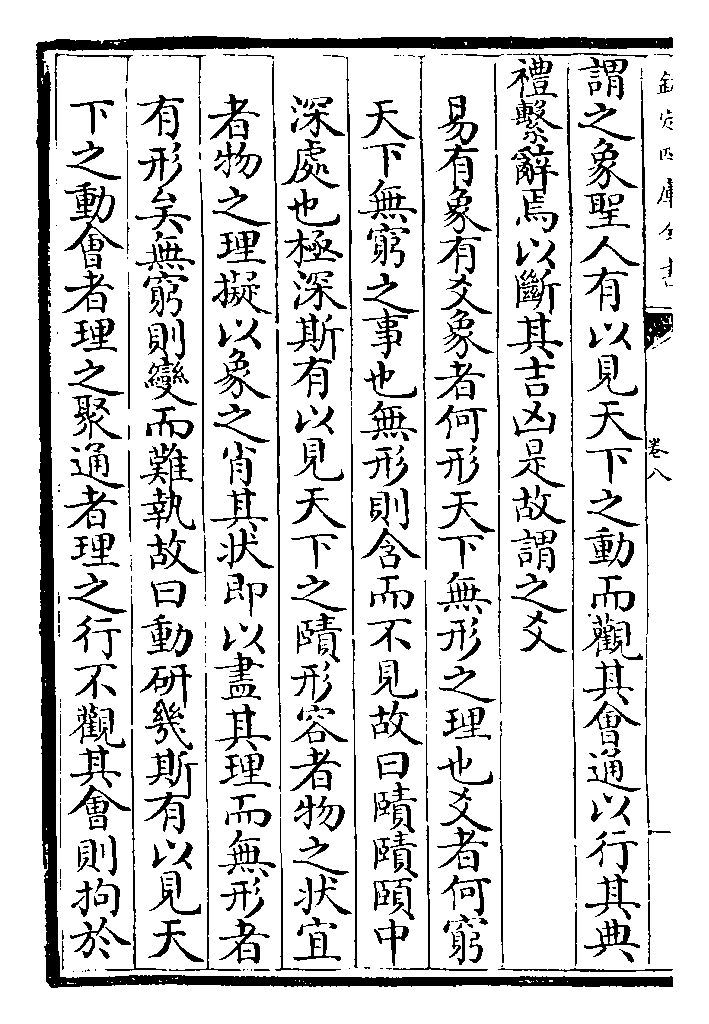 欽定四庫全書
卷八
謂之象聖人有以見天下之動而觀其會通以行其典
禮繫辭焉以斷其吉凶是故謂之爻
易有象有爻象者何形天下無形之理也爻者何窮
天下無窮之事也無形則含而不見故曰賾賾頤中
深處也極深斯有以見天下之賾形容者物之狀宜
者物之理擬以象之肖其状即以盡其理而無形者
有形矣無窮則變而難執故曰動研幾斯有以見天
下之動會者理之聚通者理之行不觀其會則拘於